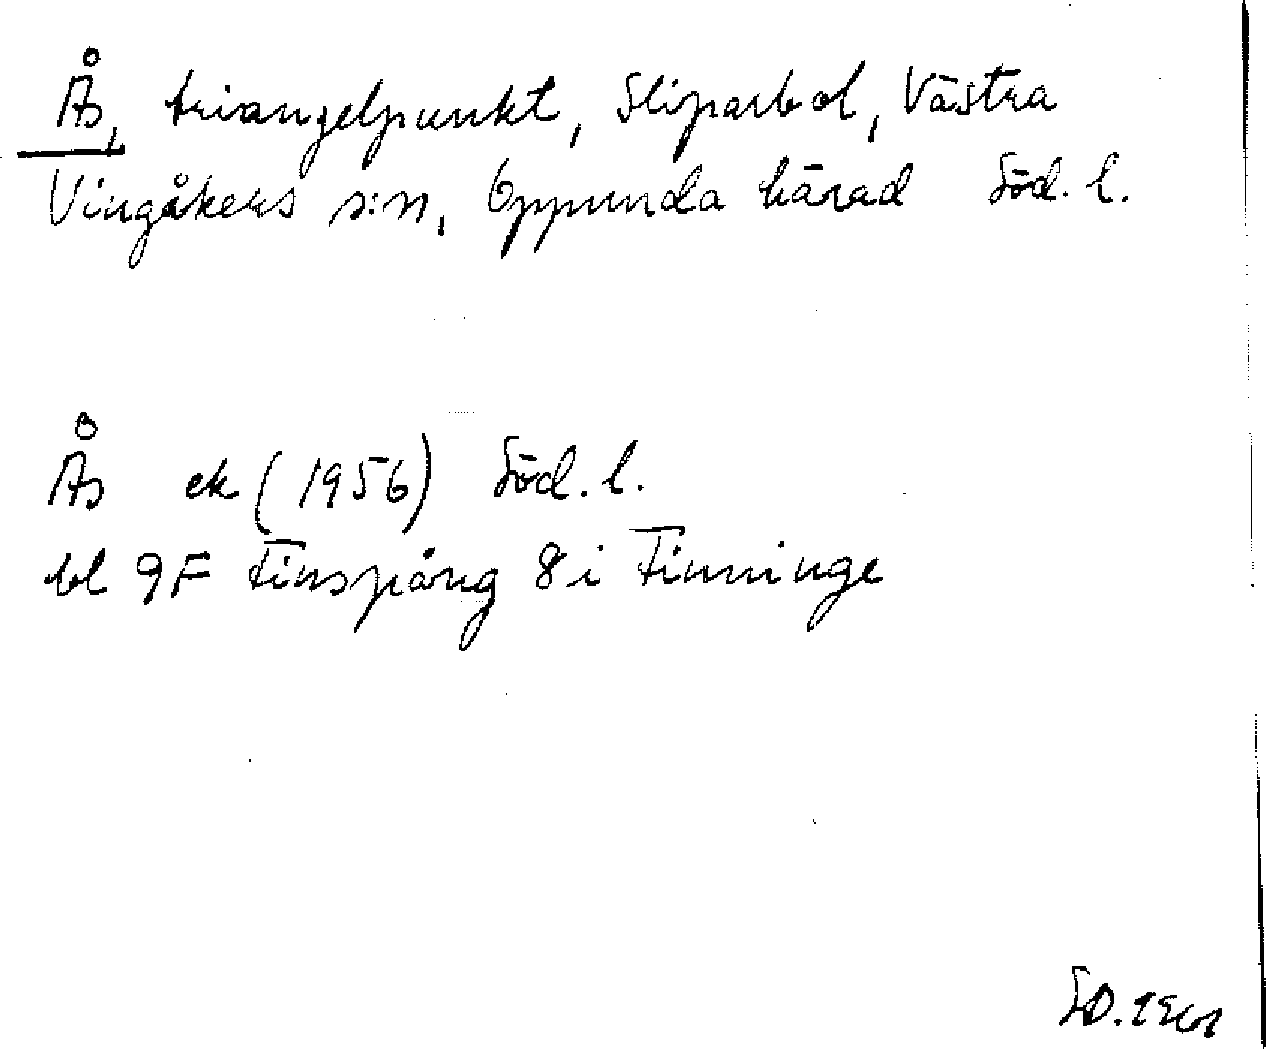 Ås, triangelpunkt, Sliparbol, Västra
Vingåkers s:n, Oppunda härad Söd. l.
Ås ek (1956) Söd. l.
bl 9F Finspång 8 i Finninge